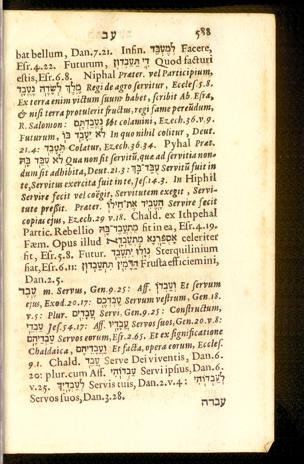 עב 588
bat bellum, Dan.7.21. Infin. לְמֶעְבַּד Facere,
Esr.4.22. Futurum, דִּי תַעַבְדוּן Quod facturi
estis, Esr.6.8. Niphal Præter. vel Participium,
מֶלֶךְ לְשָׂדֶה נֶעֱבָד Regi de agro servitur, Eccles.5.8.
Ex terra enim victum suum habet, scribit Ab. Esra,
& nisi terra protulerit fructus, regi fame pereundum,
R. Salomon: נֶעֱבַדְתֶּם colamini, Ezech.36.v.9.
Futurum, לֹא יֵעָבֵד בּוֹ In quo nihil colitur, Deut.
21.4: תֵּעָבֵד Colatur, Ezech.36.34. Pyhal Præt.
לֹא עֻבַּד בָּהּ Qua non sit servitū, qua ad servitia non-
dum sit adhibita, Deut.21.3: עֻבַּד־בָּךְ Servitū fuit in
te, Servitus exercita fuit in te, Jes.14.3. In Hiphil
Servire fecit vel coëgit, Servitutem exegit, Servi-
tute pressit. Præter. הֶעֱבִיד אֶת־חֵילוֹ Servire fecit
copias ejus, Ezech.29 v.18. Chald. ex Ithpehal
Partic. Rebellio מִתְעֲבֶד־בַּהּ sit in ea, Esr.4.19.
Fæm. Opus illud אָסְפַּרְנָא מִתְעַבְדָא celeriter
fit, Esr.5.8. Futur. נְוָלוּ יִתְעֲבֵד Sterquilinium
fiat, Esr.6.11: הַדָּמִין תִּתְעַבְדוּן Frusta efficiemini,
Dan.2.5.
עֶבֶד m. Servus, Gen.9.25: Aff. וְעַבְדּוֹ Et servum
ejus, Exod.20.17: עַבְדְּכֶם Servum vestrum, Gen.18.
v.5: Plur. עֲבָדִים Servi, Gen.9.25: Constructum,
עַבְדֵי Jes.54.17: Aff. עֲבָדָיו Servos suos, Gen.20.v.8:
עַבְדֵיהֶם Servos eorum, Esr.2.65. Et ex significatione
Chaldaica, וַעֲבָדֵיהֶם Et facta, opera eorum, Eccles.
9.1. Chald. עֲבֵד Serve Dei viventis, Dan.6.
20: plur. cum Aff. עַבְדוֹהִי Servi ipsius, Dan.6.
v.25. לְעַבְדָיךְ Servis tuis, Dan.2.v.4: לְעַבְדוֹהִי
Servos suos, Dan.3.28.
עבדה